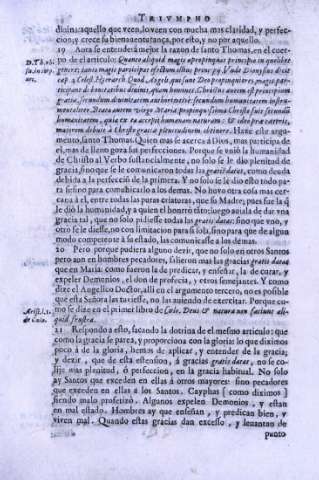 TRIVMPHO
diuina: aquello que veen, lo veen con mucha mas claridad, y perfeccion;
y crece su bienauenturança, por esto, y no por aquello.
19 Aora se entenderà mejor la razon de santo Thomas, en el cuerpo
de el articulo: Quanto aliquid magis apropinquat principio in quolibet
genere; tanto magis participat effectum illius principij. Vnde Dionysius dicit
cap. 4. Celest. Hierarch. Quod Angeli, qui sunt Deo propinquiores, magis participant
de bonitatibus diuinis, quam homines. Christus autem est principium
gratiæ, secundum diuinitatem authoritatiuè: secundum humanitatem
Beata autem Virgo Maria, propinquissima Christo fuit secundum
humanitatem, quia ex ea accepit humanam naturam: & ideo præ cæteris,
maiorem debuit à Christo gratiæ plenitudinem obtinere. Haze este argumento,
santo Thomas. Quien mas se acerca a Dios, mas participa de
el, mas de lleno goza sus perfecciones. Porque se vniò la humanidad
de Christo al Verbo sustancialmente, no solo se le diò plenitud de
gracia, sino que se le comunicaron todas las gratis datas, como deuda
debida a la perfeccion de la primera. Y no solo se le diò esto todo para
si, sino para comunicarlo a los demas. No huuo otra cosa mas cercana
à el, entre todas las puras criaturas, que su Madre; pues fue la q̃
le diò la humanidad, y a quien el honrrò
gracia tal, que no solo pidiesse todas las gratis datas: sino que vno, y
otro se le diesse, no con limitacion para si sola, sino para que de algun
modo competente à su estado, las comunicasse a los demas.
20 Pero porque pudiera alguno dezir, que no solo en otros Santos
pero aun en hombres pecadores, salieron mas las gracias gratis datas
que en Maria: como fueron la de predicar, y enseñar, la de curar, y
expeler Demonios, el don de profecia, y otros semejantes. Y como
dize el Angelico Doctor, alli en el argumento tercero, no es posible
que esta Señora las tuuiesse, no las auiendo de exercitar. Porque como
se dize en el primer libro de Cœlo, Deus & natura non faciunt aliquid
frustra.
21 Respondo a esto, sacando la dotrina de el mesmo articulo: que
como la gracia se parea, y proporciona con la gloria: lo que diximos
poco à de la gloria, hemos de aplicar, y entender de la gracia;
y dezir, que de esta estension, à gracias gratis datas, no se colije
mas plenitud, ò perfeccion, en la gracia habitual. No solo
ay Santos que exceden en ellas à otros mayores: sino pecadores
que exceden en ellas à los Santos. Cayphas [como diximos]
siendo malo profetizò. Algunos expelen Demonios, y estan
en mal estado. Hombres ay que enseñan, y predican bien, y
viven mal. Quando estas gracias dan excesso, y leuantan de
punto